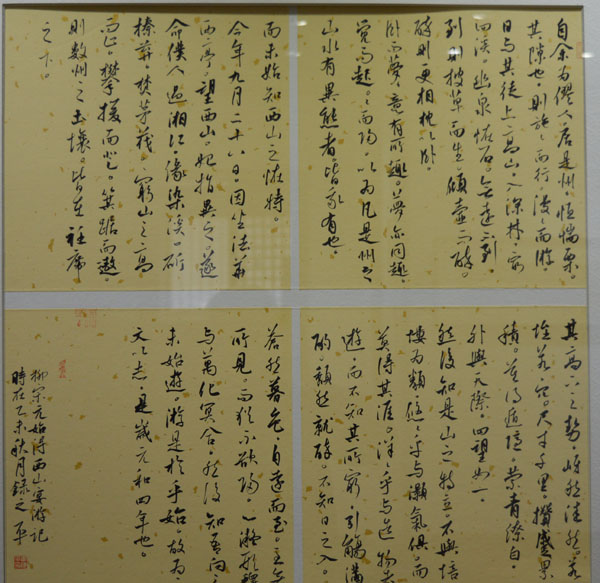 自余为僇人。居是州。恒惴栗。
其隙也。則施々而行。漫々而游。
日与其徒上高山。入深林。窮
回溪。幽泉怪石。无遠不到。
到則披草而坐。傾壺而醉。
醉則更相枕以卧。
卧而夢。意有所趣。夢亦同趣。
觉而起。起而歸。以为凡是州之
山水有異態者。皆我有也。
而未始知西山之怪特。
今年九月二十八日。因坐法華
西亭。望西山。始指異之。遂
命僕人過湘江。缘染溪。斫
榛莽。焚茅茷。窮山之高
而止。攀援而登。箕踞而遨。
則数州之土壤。皆在衽席
之下。
其高下之勢。岈然洼然。若
垤若穴。尺寸千里。攒蹙累
積。莫得遁隱。萦青缭白。
外與天際。四望如一。
然後知是山之特立。不與培
塿为類。悠々乎与灝氣俱。而
莫得其涯。洋々乎与造物者
遊。而不知其所窮。引觴滿
酌。頹然就醉。不知日之入。
蒼然暮色。自遠而至。至無
所見。而猶不欲歸。心凝形釋
与萬化冥合。然後知吾向之
未始遊。游是於乎始。故為之
文以志。是歲元和四年也。
柳宗元始得西山宴游记
時在乙未秋月錄之 平